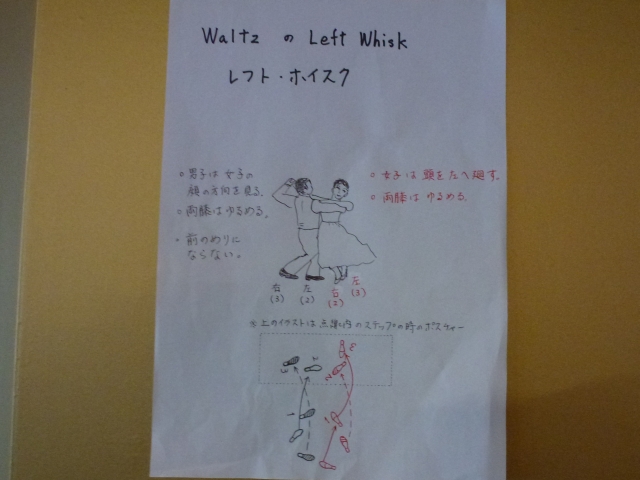 Waltz の Left Whisk
レフト・ホイスク
○ 男子は 女子の
顔の方向を見る.
○ 両膝は ゆるめる。
○ 前のめりに
ならない。
○ 女子は 頭を左へ廻す.
○ 両膝は ゆるめる.
右 左 右 左
(3) (2) (2) (3)
上のイラストは 点線内 のステップの時のポスチャー
3 2 3 2
1 1